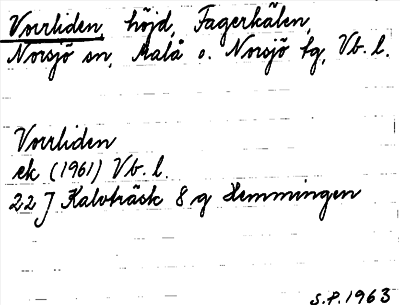 Vorrliden, höjd, Fagerkälen,
Norsjö sn, Malå o. Norsjö tg, Vb. l.
Vorrliden
ek (1961) Vb. l.
22 J Kalvträsk 8 g Hemmingen
S.P. 1963